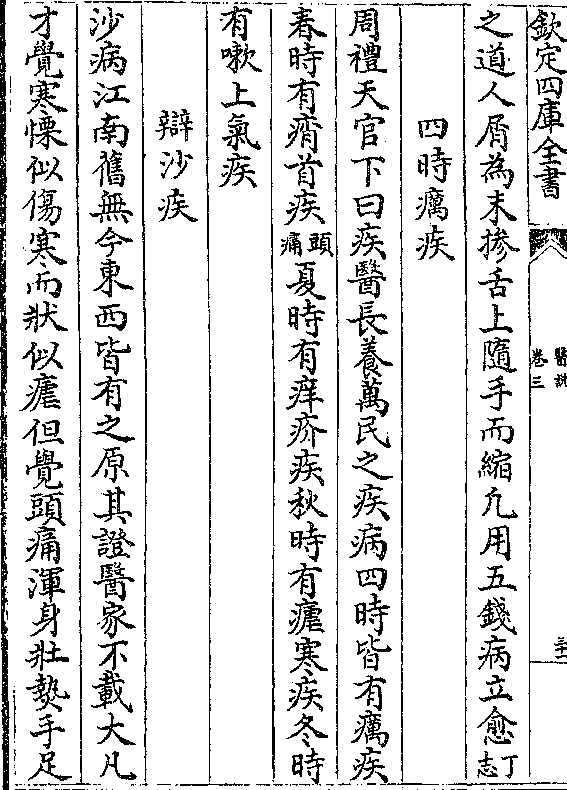 欽定四庫全書
醫說
卷三
之道人屑為末掺舌上隨手而縮凢用五錢病立愈丁志
四時癘疾
周禮天官下曰疾醫長養萬民之疾病四時皆有癘疾
春時有痟首疾頭痛夏時有痒疥疾秋時有瘧寒疾冬時
有嗽上氣疾
辯沙疾
沙病江南舊無今東西皆有之原其證醫家不載大凡
才覺寒慄似傷寒而狀似瘧但覺頭痛渾身壯熱手足